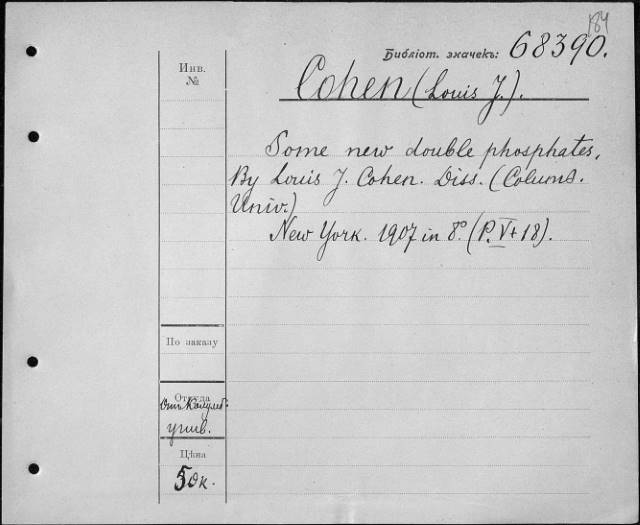 184
Библіот. значекъ: 68390.
Инв.
№
Cohen (Louis J.).
Some new double phosphates,
By Louis J. Cohen. Diss. (Columb.
Univ.)
New York. 1907 in 8°. (P. V+18).
По заказу
Откуда
Отъ Колумб.
унив.
Цѣна
50к.